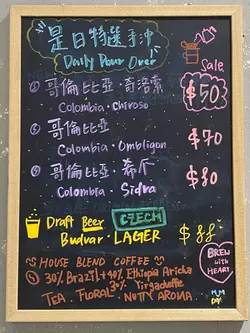 是日特選手沖
Daily Pour Over
Sale
① 哥倫比亞·奇洛索
Colombia · Chiroso
$50
② 哥倫比亞
Colombia · Ombligon
$70
③ 哥倫比亞·希爪
Colombia · Sidra
$80
Draft Beer CZECH
Budvar · LAGER
$88
BREW with HEART
HOUSE BLEND COFFEE
30% Brazil + 40% Ethiopia Aricha
3% Yirgacheffe
TEA FLORAL NUTTY AROMA